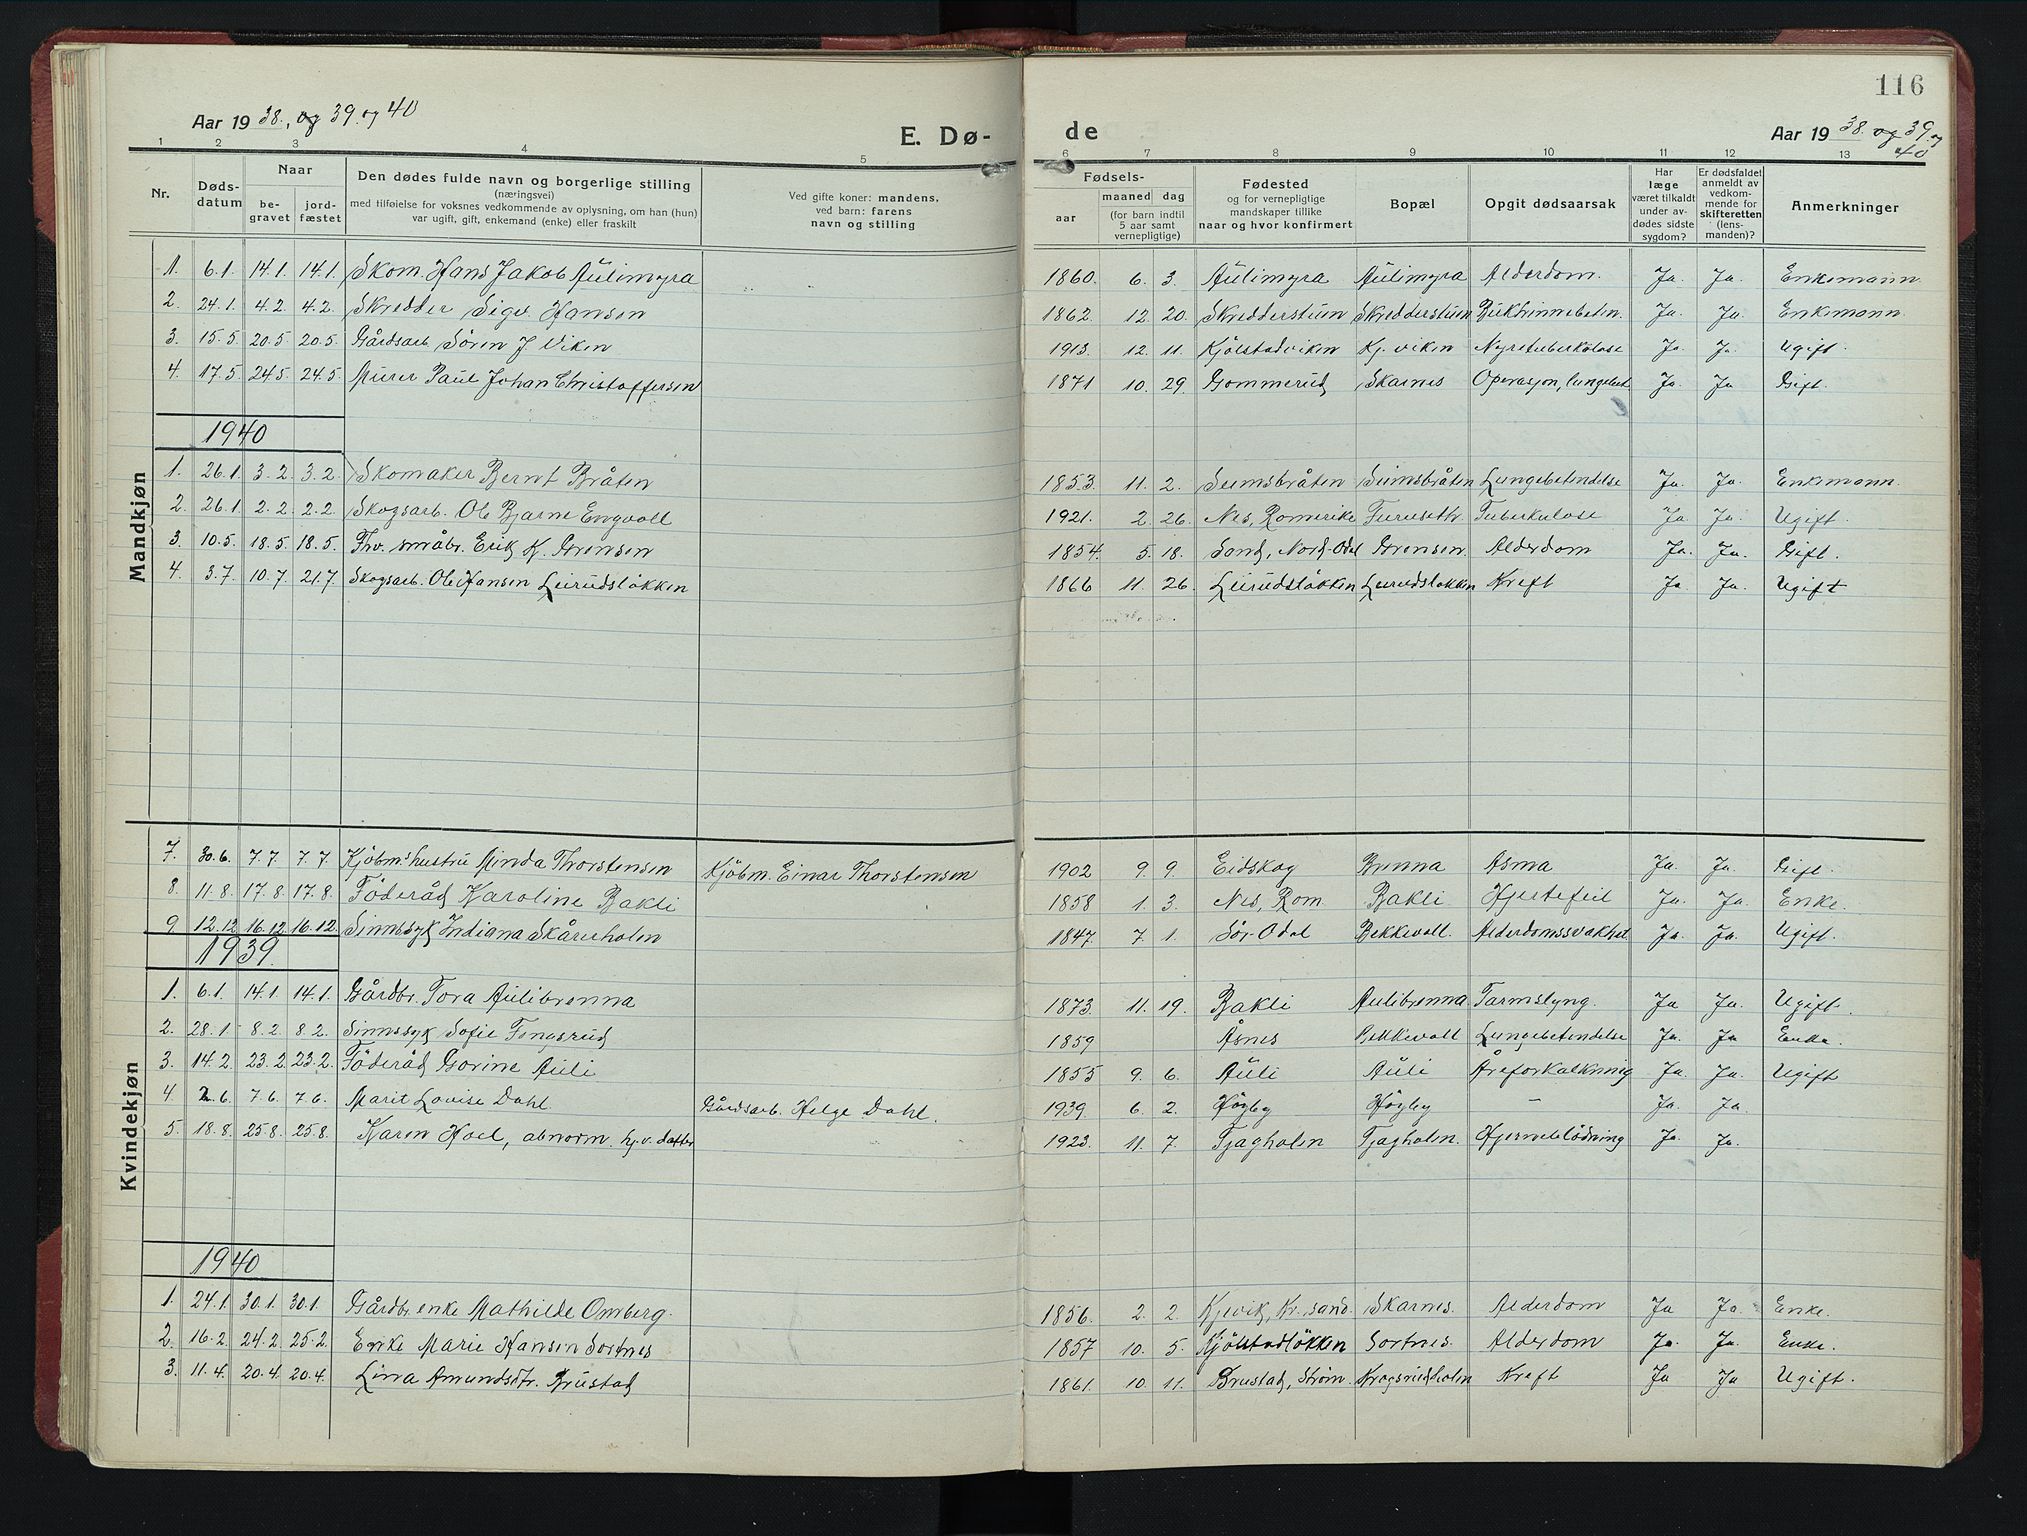 116
Aar 1938, og 39 og 40
E. Dø-
de
Aar 1938 og 39 og 40
1 2 3 4 5 6 7 8 9 10 11 12 13
Nr. Døds-datum Naar be-gravet jord-fæstet Den dødes fulde navn og borgerlige stilling (næringsvei) med tilføielse for voksnes vedkommende av oplysning, om han (hun) var ugift, gift, enkemand (enke) eller fraskilt Ved gifte koner: mandens, ved barn: farens navn og stilling Fødsels- aar maaned dag (for barn indtil 5 aar samt vernepligtige) Fødested og for vernepligtige mandskaper tillike naar og hvor konfirmert Bopæl Opgit dødsaarsak Har læge været tilkaldt under av-dødes sidste sygdom? Er dødsfaldet anmeldt av vedkom-mende for skifteretten (lens-manden)? Anmerkninger
Mandkjøn
1. 6.1. 14.1. 14.1. Skom. Hans Jakob Aulimyra 1860. 6. 3. Aulimyra Aulimyra Alderdom. Ja. Ja. Enkemann.
2. 24.1. 4.2. 4.2. Skredder Sigv. Hansen 1862. 12. 20. Skredderstuen Skredderstuen Bukhinnebeten. Ja. Ja. Enkemann.
3. 15.5. 20.5. 20.5. Gårdsarb. Sören J. Viken 1913. 12. 11. Kjölstadviken Kj. viken Nyretuberkulose Ja. Ja. Ugift.
4. 17.5. 24.5. 24.5. Murer Paul Johan Christoffersen 1871 10. 29. Gommerud Skarnes Operasjon, lungebet. Ja. Ja Gift.
1940
1. 26.1. 3.2. 3.2. Skomaker Bernt Bråten 1853. 11. 2. Seimsbråten Seimsbråten Lungebetendelse Ja. Ja. Enkemann.
2. 26.1. 2.2. 2.2. Skogsarb. Ole Bjarne Engvoll 1921. 2. 26. Nes, Romerike Furuseth. Tuberkulose Ja Ja. Ugift.
3. 10.5. 18.5. 18.5. Fhv. småbr. Erik K. Grensen 1854. 5. 18. Sand, Nord-Odal Grensen. Alderdom Ja. Ja. Gift.
4. 3.7. 10.7 21.7. Skogsarb. Ole Hansen Leirudslökken 1866 11. 26. Leirudslökken Leirudslökken Kreft Ja Ja. Ugift
Kvindekjøn
7. 30.6. 7.7. 7.7. Kjöbm.hustru Minda Thorstensen Kjöbm. Einar Thorstensen 1902 9. 9. Eidskog Brenna Asma Ja. Ja. Gift.
8. 11.8. 17.8. 17.8. Föderåd Karoline Bakli 1858 1. 3. Nes, Rom. Bakli. Hjertefeil Ja Ja. Enke.
9 12.12 16.12. 16.12. Sinnssyk Indiana Skårerholen 1847. 7. 1. Sör-Odal Bekkevoll. Alderdomssvakhet Ja. Ja. Ugift.
1939.
1. 6.1. 14.1. 14.1. Gårdbr. Tora Aulibrenna 1873. 11. 19. Bakli Aulibrenna. Tarmslyng. Ja Ja. Ugift.
2. 28.1. 8.2. 8.2. Sinnssyk Sofie Fongsrud 1859 Åsnes Bekkevoll Lungebetendelse Ja. Ja Enke.
3. 14.2. 23.2. 23.2. Föderåd Gorine Auli 1855 9. 6. Auli Auli Åreforkalkning Ja. Ja. Ugift
4. 2.6. 7.6. 7.6. Marit Lovise Dahl. Gårdsarb. Helge Dahl. 1939 6. 2. Högby Högby - Ja. Ja.
5. 18.8. 25.8. 25.8. Karen Hoel, abnorm. hj.v. datter 1923. 11. 7. Tjagholen Tjagholen. Hjerneblödning Ja. Ja.
1940
1. 24.1. 30.1. 30.1. Gårdbr.enke Mathilde Omberg. 1856. 2. 2. Kjevik, Kr.sand. Skarnes. Alderdom Ja Ja. Enke.
2. 16.2. 24.2. 25.2. Enke Marie Hansen Sortnes 1857 10. 5. Kjölstadlökken Sortnes. Alderdom Ja. Ja. Enke.
3. 11.4. 20.4. 20.4. Lina Amundsdtr. Brustad 1861. 10. 11. Brustad, Ström. Krogsrudholen Kreft Ja Ja Ugift.